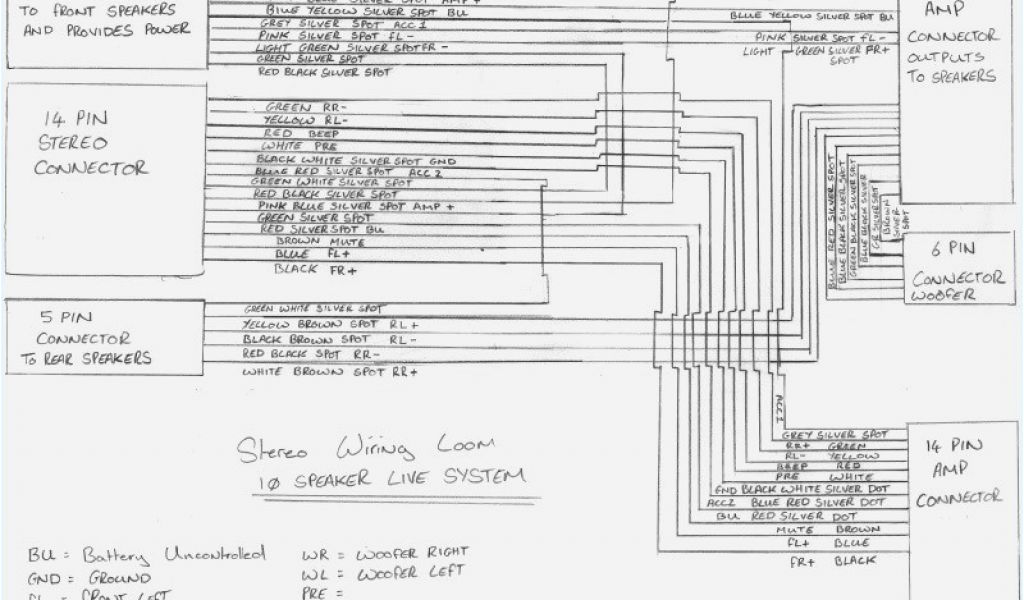 TO FRONT SPEAKERS
AND PROVIDES POWER
BLUE YELLOW SILVER SPOT BU
GREY SILVER SPOT ACC 1
PINK SILVER SPOT FL-
LIGHT GREEN SILVER SPOT FR-
GREEN SILVER SPOT
RED BLACK SILVER SPOT
BLUE YELLOW SILVER SPOT BU
PINK SILVER SPOT FL-
LIGHT GREEN SILVER FR+
SPOT
AMP
CONNECTOR
OUTPUTS
TO SPEAKERS
14 PIN
STEREO
CONNECTOR
GREEN RR-
YELLOW RL-
RED BEEP
WHITE PRE
BLACK WHITE SILVER SPOT GND
BLUE RED SILVER SPOT ACC 2
GREEN WHITE SILVER SPOT
RED BLACK SILVER SPOT
PINK BLUE SILVER SPOT AMP +
GREEN SILVER SPOT
RED SILVER SPOT BU
BROWN MUTE
BLUE FL+
BLACK FR+
BLUE RED SILVER SPOT
BLUE BLACK SILVER SPOT
GREEN BLACK SILVER SPOT
BLUE BLACK SILVER
SILVER SPOT
BROWN
SILVER
SPOT
6 PIN
CONNECTOR
WOOFER
5 PIN
CONNECTOR
TO REAR SPEAKERS
GREEN WHITE SILVER SPOT
YELLOW BROWN SPOT RL+
BLACK BROWN SPOT RL-
RED BLACK SPOT RR-
WHITE BROWN SPOT RR+
ACC 1
GREY SILVER SPOT
RR+ GREEN
RL- YELLOW
BEEP RED
PRE WHITE
GND BLACK WHITE SILVER DOT
ACC2 BLUE RED SILVER DOT
BU RED SILVER DOT
MUTE BROWN
FL+ BLUE
FR+ BLACK
14 PIN
AMP
CONNECTOR
Stereo Wiring Loom
10 SPEAKER LIVE SYSTEM
BU = Battery Uncontrolled
GND = GROUND
FL = FRONT LEFT
WR = WOOFER RIGHT
WL = WOOFER LEFT
PRE =